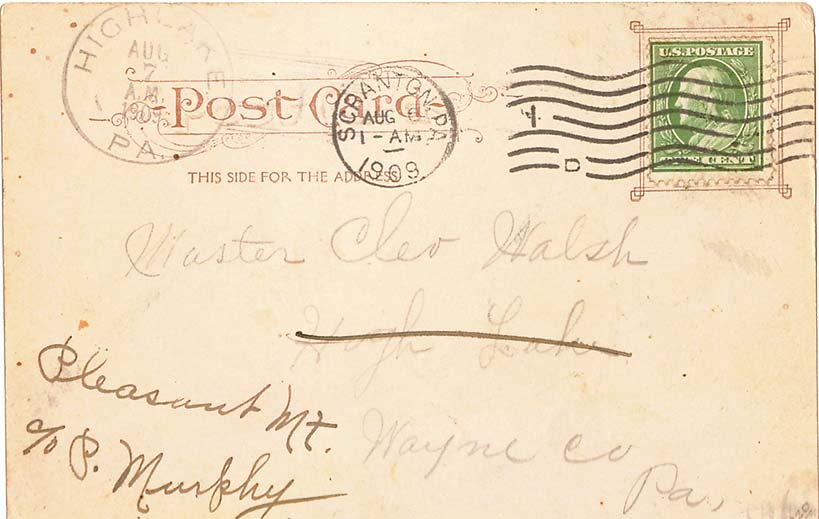 HIGHLAKE
AUG
7
A.M.
1909
PA.
Post Card
SCRANTON, PA
AUG 6
1-AM
1909
1
D
U.S. POSTAGE
ONE CENT
THIS SIDE FOR THE ADDRESS
Master Cleo Walsh
High Lake
Pleasant Mt.
c/o P. Murphy
Wayne Co
Pa.